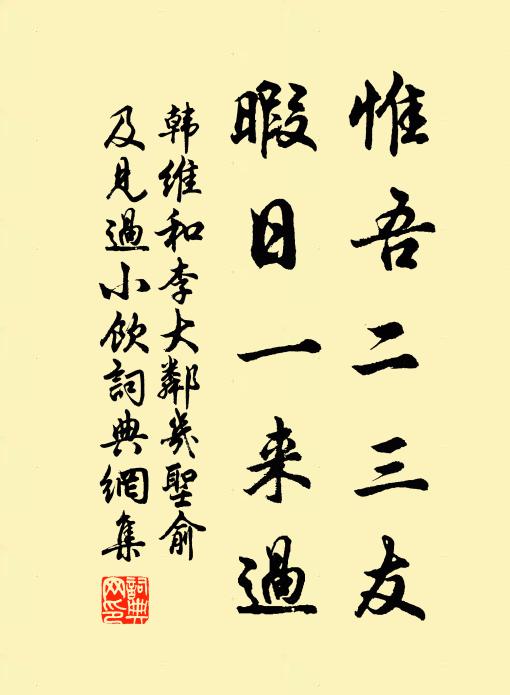 惟吾二三友
暇日一来過
韩維和李大鄰幾聖俞
及見過小飲詞典網集
詞典
网印